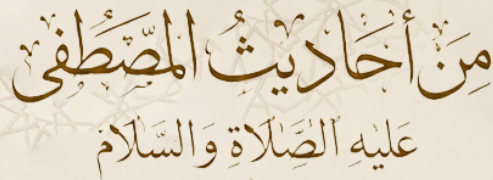 مِنَ أَحَادِيثُ المُصَّطَفَى
عَلَيْهِ الصَّلَاةِ وَالسَّلَام